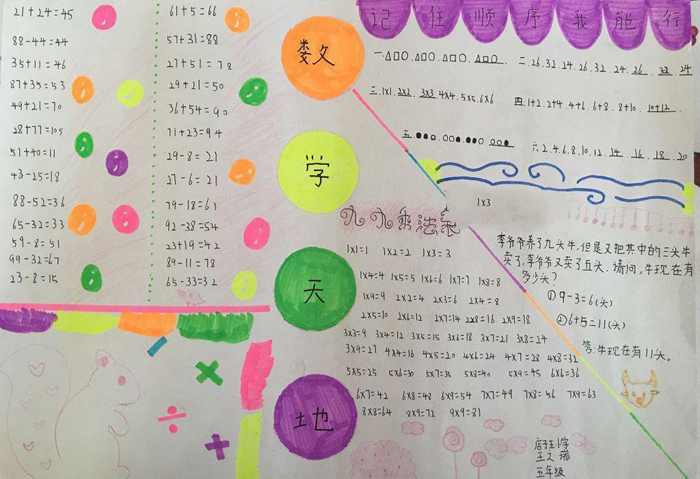 21+24=45
88-44=44
35+11=46
87+35=53
49+21=70
28+77=105
51+40=11
43-25=18
88-52=36
65-32=33
59-8=51
99-32=67
23-8=15
61+5=66
57+31=88
27+51=78
29+21=50
36+54=90
71+23=94
29-8=21
27-6=21
79-18=61
92-28=54
23+19=42
89-11=78
65-33=32
数
学
天
地
记住顺序我能行
一.△□○.△□○.△□○.△□○
二.26.32.24.26.32.24.26.32.24
三.1×1.2×2.3×3.4×4.5×5.6×6
四.1+2.2+4.4+6.6+8.8+10.10+12.
五.●●○.○○●.●●○.○○●
六.2.4.6.8.10.12.14.16.18.20
1×3
九九乘法表
1×1=1 1×2=2 1×3=3
1×4=4 1×5=5 1×6=6 1×7=7 1×8=8
1×9=9 2×2=4 2×3=6 2×4=8
2×5=10 2×6=12 2×7=14 2×8=16 2×9=18
3×3=9 3×4=12 3×5=15 3×6=18 3×7=21 3×8=24
3×9=27 4×4=16 4×5=20 4×6=24 4×7=28 4×8=32
5×5=25 5×6=30 5×7=35 5×8=40 5×9=45 6×6=36
6×7=42 6×8=48 6×9=54 7×7=49 7×8=56 7×9=63
8×8=64 8×9=72 9×9=81
李爷爷养了九头牛,但是又把其中的三头牛
卖了,李爷爷又买了五头,请问,牛现在有
多少头?
①9-3=6(头)
②6+5=11(头)
答:牛现在有11头。
小学
五年级